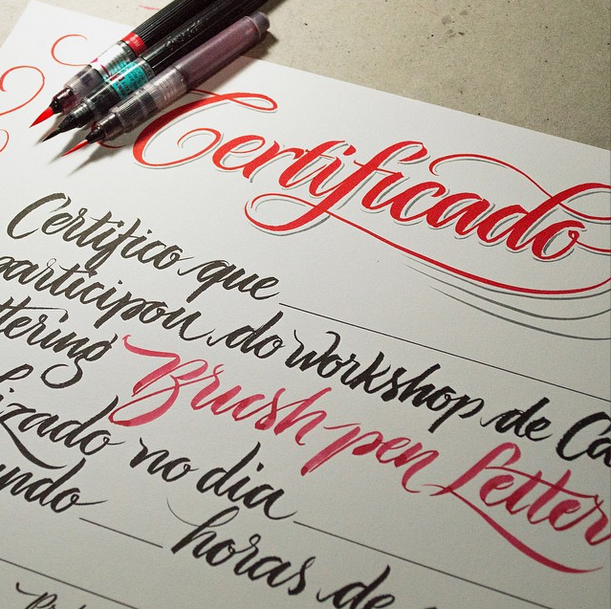 Certificado
Certifico que
participou do workshop de Ca
ttering Brush pen Letter
izado no dia
ndo horas de